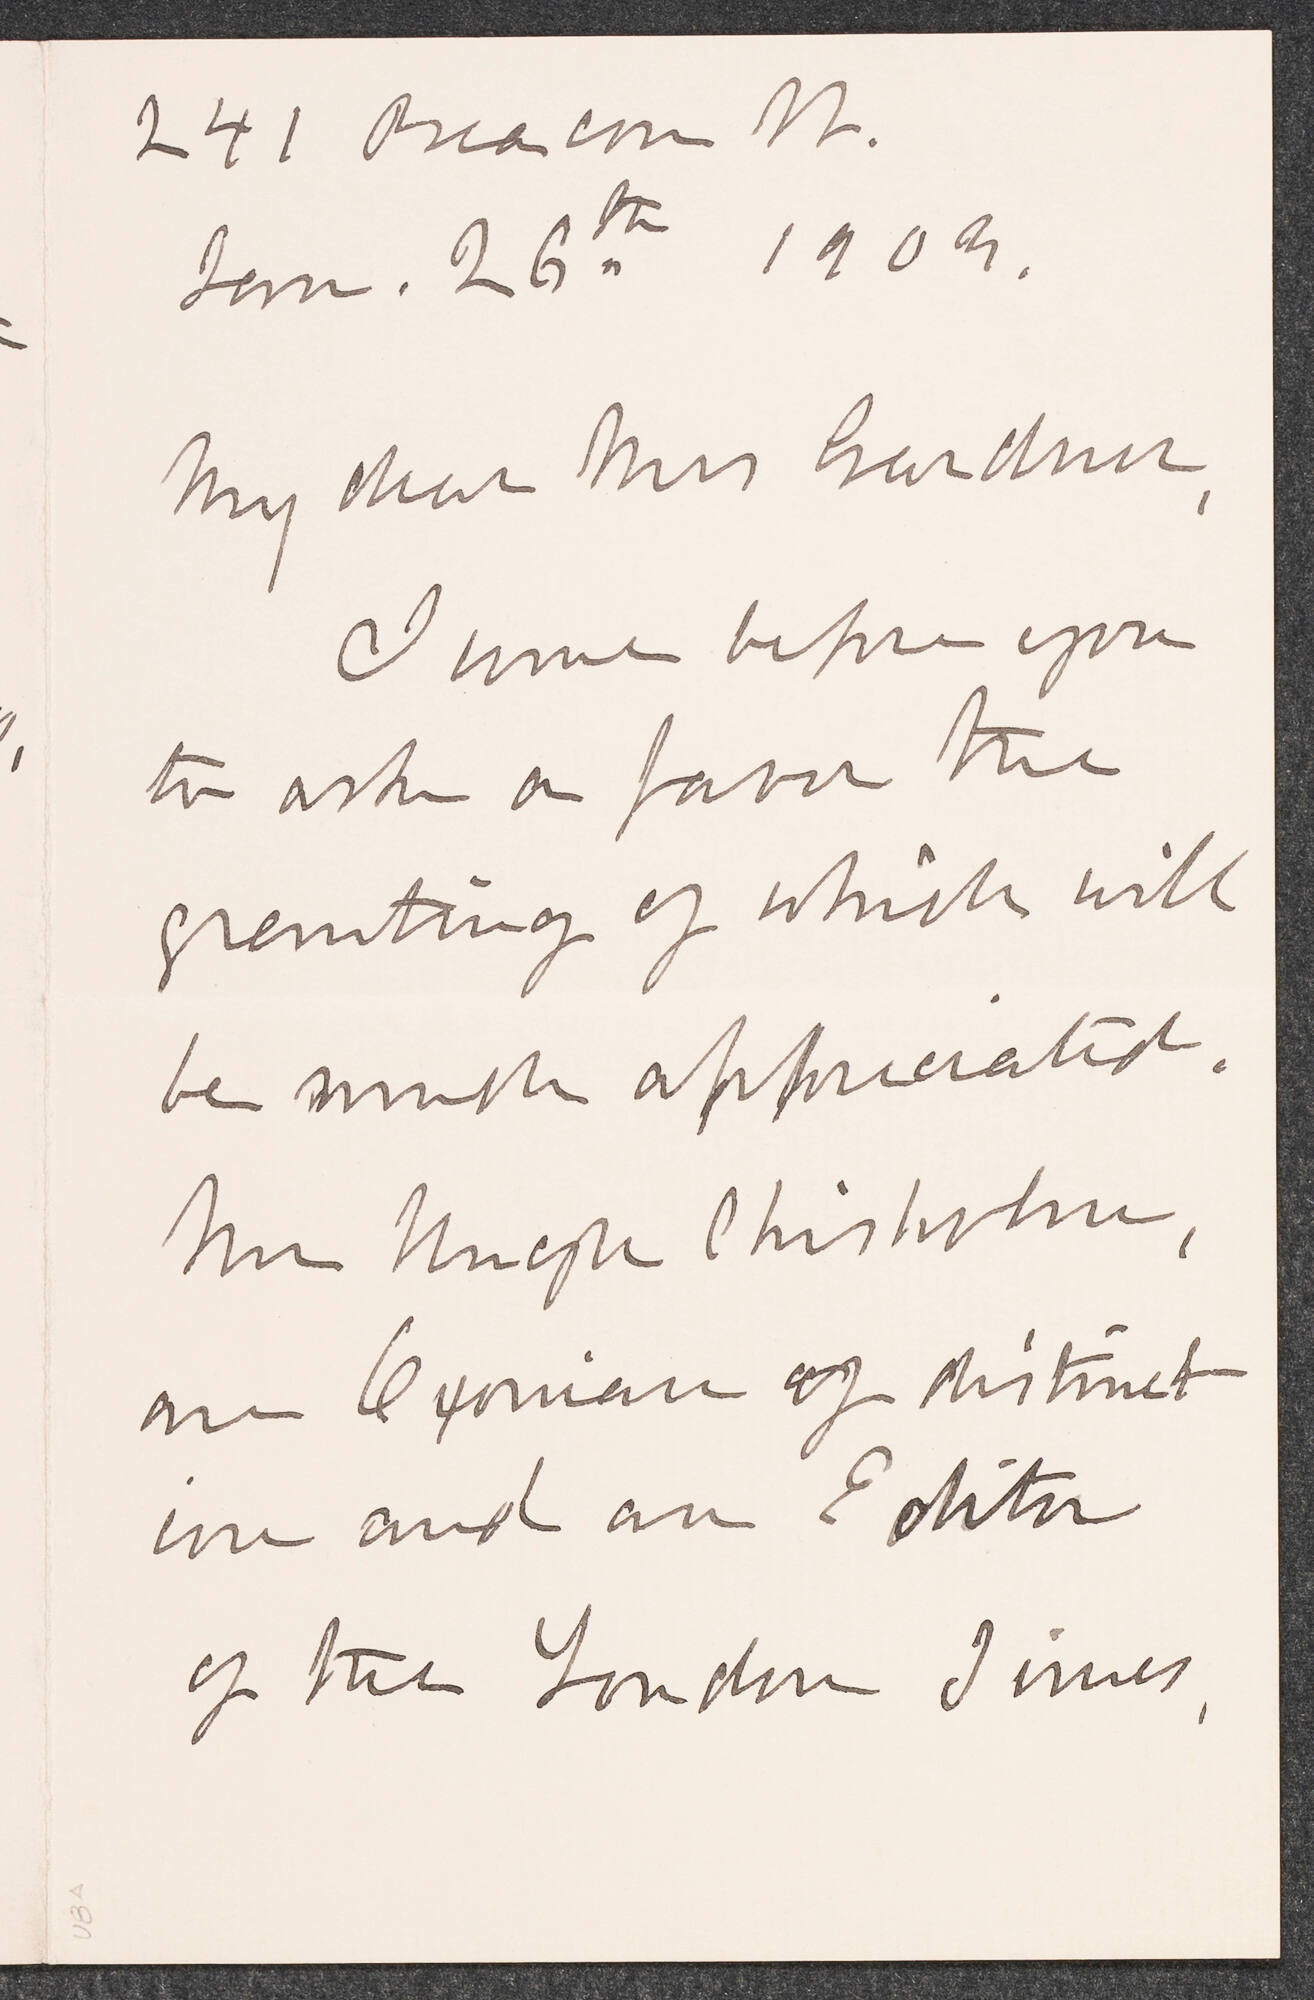 241 Beacon St.
Jan. 26th 1909.
My dear Mrs Gardner,
I come before you
to ask a favor the
granting of which will
be much appreciated.
Mr Hugh Chisholm,
an Oxonian of distinct
ion and an Editor
of the London Times,